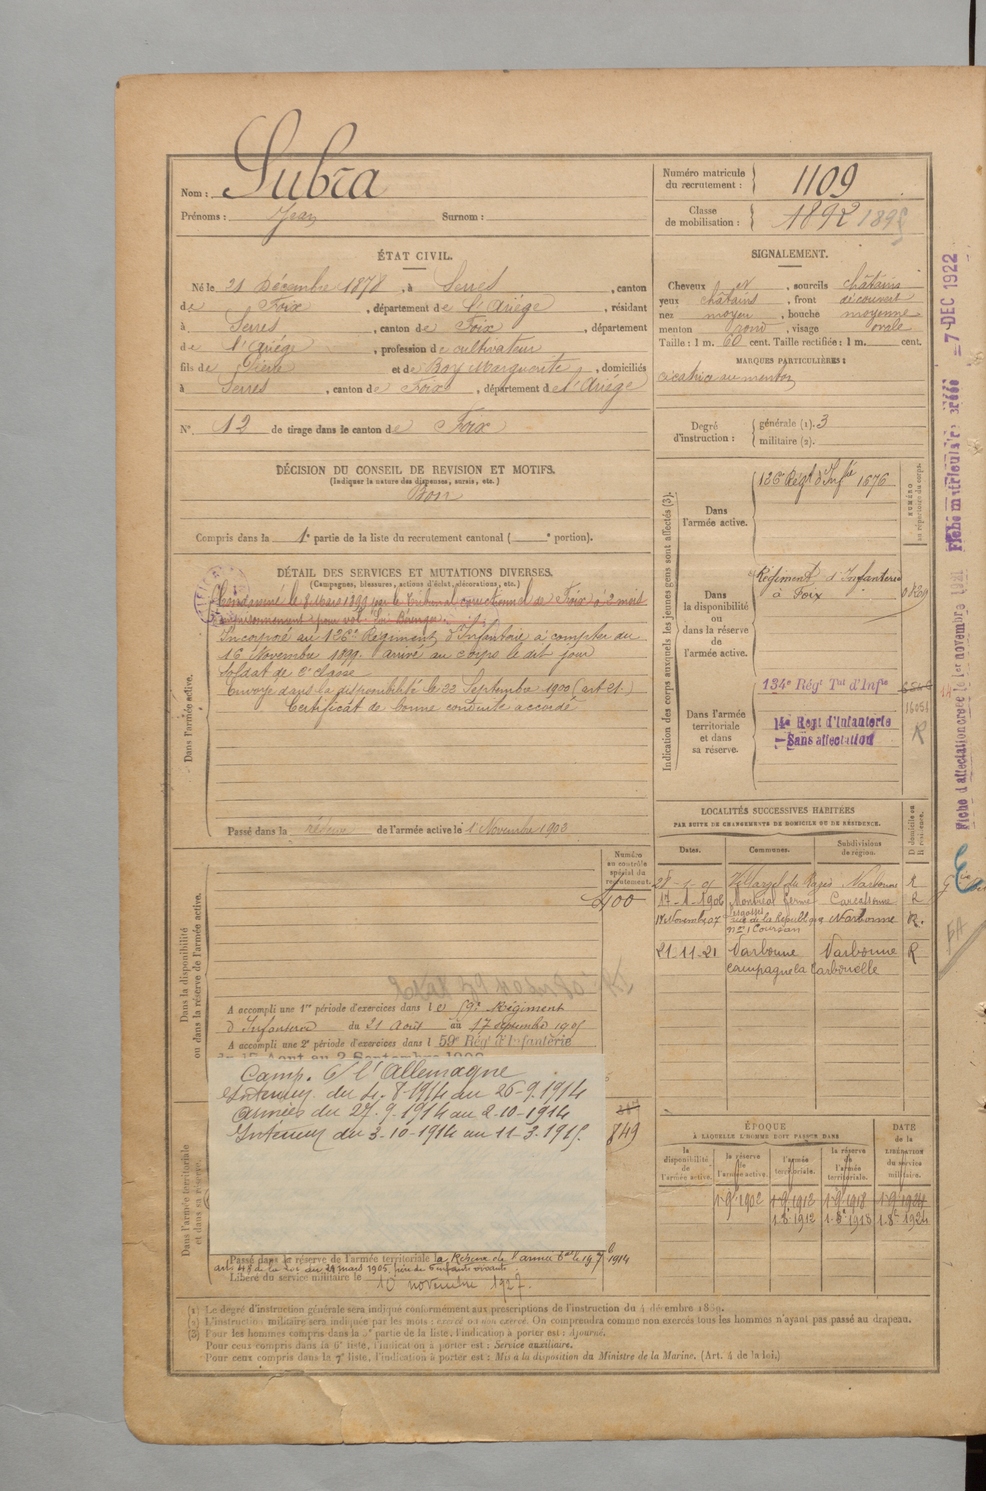 Nom : Subra
Prénoms : Jean Surnom :
Numéro matricule du recrutement : 1109
Classe de mobilisation : 1892
ÉTAT CIVIL.
Né le 21 Décembre 1878, à Serres, canton
de Foix, département de l'Ariége, résidant
à Serres, canton de Foix, département
de l'Ariége, profession de cultivateur
fils de Pierre et de Boy Marguerite, domiciliés
à Serres, canton de Foix, département de l'Ariége
N° 12 de tirage dans le canton de Foix
SIGNALEMENT.
Cheveux et, sourcils châtains
yeux châtains, front découvert
nez moyen, bouche moyenne
menton rond, visage ovale
Taille : 1 m. 60 cent. Taille rectifiée : 1 m. cent.
MARQUES PARTICULIÈRES :
cicatrice au menton
Degré d'instruction : générale (1). 3
militaire (2).
DÉCISION DU CONSEIL DE REVISION ET MOTIFS.
(Indiquer la nature des dispenses, sursis, etc.)
Bon
Compris dans la 1e partie de la liste du recrutement cantonal ( e portion).
DÉTAIL DES SERVICES ET MUTATIONS DIVERSES.
(Campagnes, blessures, actions d'éclat, décorations, etc.)
Condamné le 8 Mars 1899 par le Tribunal correctionnel de Foix à 2 mois
emprisonnement pour vol.
Incorporé au 126e Régiment d'Infanterie à compter du
16 Novembre 1899. arrivé au corps le dit jour
Soldat de 2e classe
Envoyé dans la disponibilité le 22 Septembre 1900 (art 21.)
Certificat de bonne conduite accordé
Dans l'armée active.
Passé dans la réserve de l'armée active le 1 Novembre 1903
Indication des corps auxquels les jeunes gens sont affectés (3).
Dans l'armée active.
Régt d'Infie 1676
Dans la disponibilité ou dans la réserve de l'armée active.
Régiment d'Infanterie
à Foix
Dans l'armée territoriale et dans sa réserve.
134e Régt Tal d'Infie
Regt d'Infanterie
Sans affectation
16051
LOCALITÉS SUCCESSIVES HABITÉES
PAR SUITE DE CHANGEMENTS DE DOMICILE OU DE RÉSIDENCE.
Dates. Communes. Subdivisions de région. D domicile ou R résidence.
Narbonne R
17-1-1906 Montréal Carcassonne R
17 Novembre 07 rue de la République Narbonne R.
n° 1 Coursan
21-11-21 Narbonne Narbonne R
campagne la
Dans la disponibilité ou dans la réserve de l'armée active.
Numéro au contrôle spécial du recrutement.
400
A accompli une 1re période d'exercices dans le Régiment
d'Infanterie du 21 Août au 17 septembre 1905
A accompli une 2e période d'exercices dans l 59e Rég d'Infanterie
Camp. c/ l'Allemagne
Intérieur du 4.8-1914 au 26-9.1914
armées du 27.9.1914 au 2.10-1914
Intérieur du 3-10-1914 au 11-3.1915.
849
Dans l'armée territoriale et dans sa réserve.
Passé dans la réserve de l'armée territoriale
art. 48 de la loi du 21 mars 1905, père de 6 enfants vivants.
Libéré du service militaire le 10 novembre 1927.
ÉPOQUE
À LAQUELLE L'HOMME DOIT PASSER DANS
la disponibilité de l'armée active. la réserve de l'armée active. l'armée territoriale. la réserve de l'armée territoriale.
DATE de la LIBÉRATION du service militaire.
1-9-1902 1-9-1912 1-9-1918 1-9-1924
1.8e 1912 1.8e 1918 1.8e 1924
Fiche d'affectation créée le 1er novembre 1921
Fiche matriculaire créée 7-DEC 1922
(1) Le degré d'instruction générale sera indiqué conformément aux prescriptions de l'instruction du 4 décembre 1889.
(2) L'instruction militaire sera indiquée par les mots : exercé ou non exercé. On comprendra comme non exercés tous les hommes n'ayant pas passé au drapeau.
Pour les hommes compris dans la 5e partie de la liste, l'indication à porter est : Ajourné.
Pour ceux compris dans la 6e liste, l'indication à porter est : Service auxiliaire.
Pour ceux compris dans la 7e liste, l'indication à porter est : Mis à la disposition du Ministre de la Marine. (Art. 4 de la loi.)